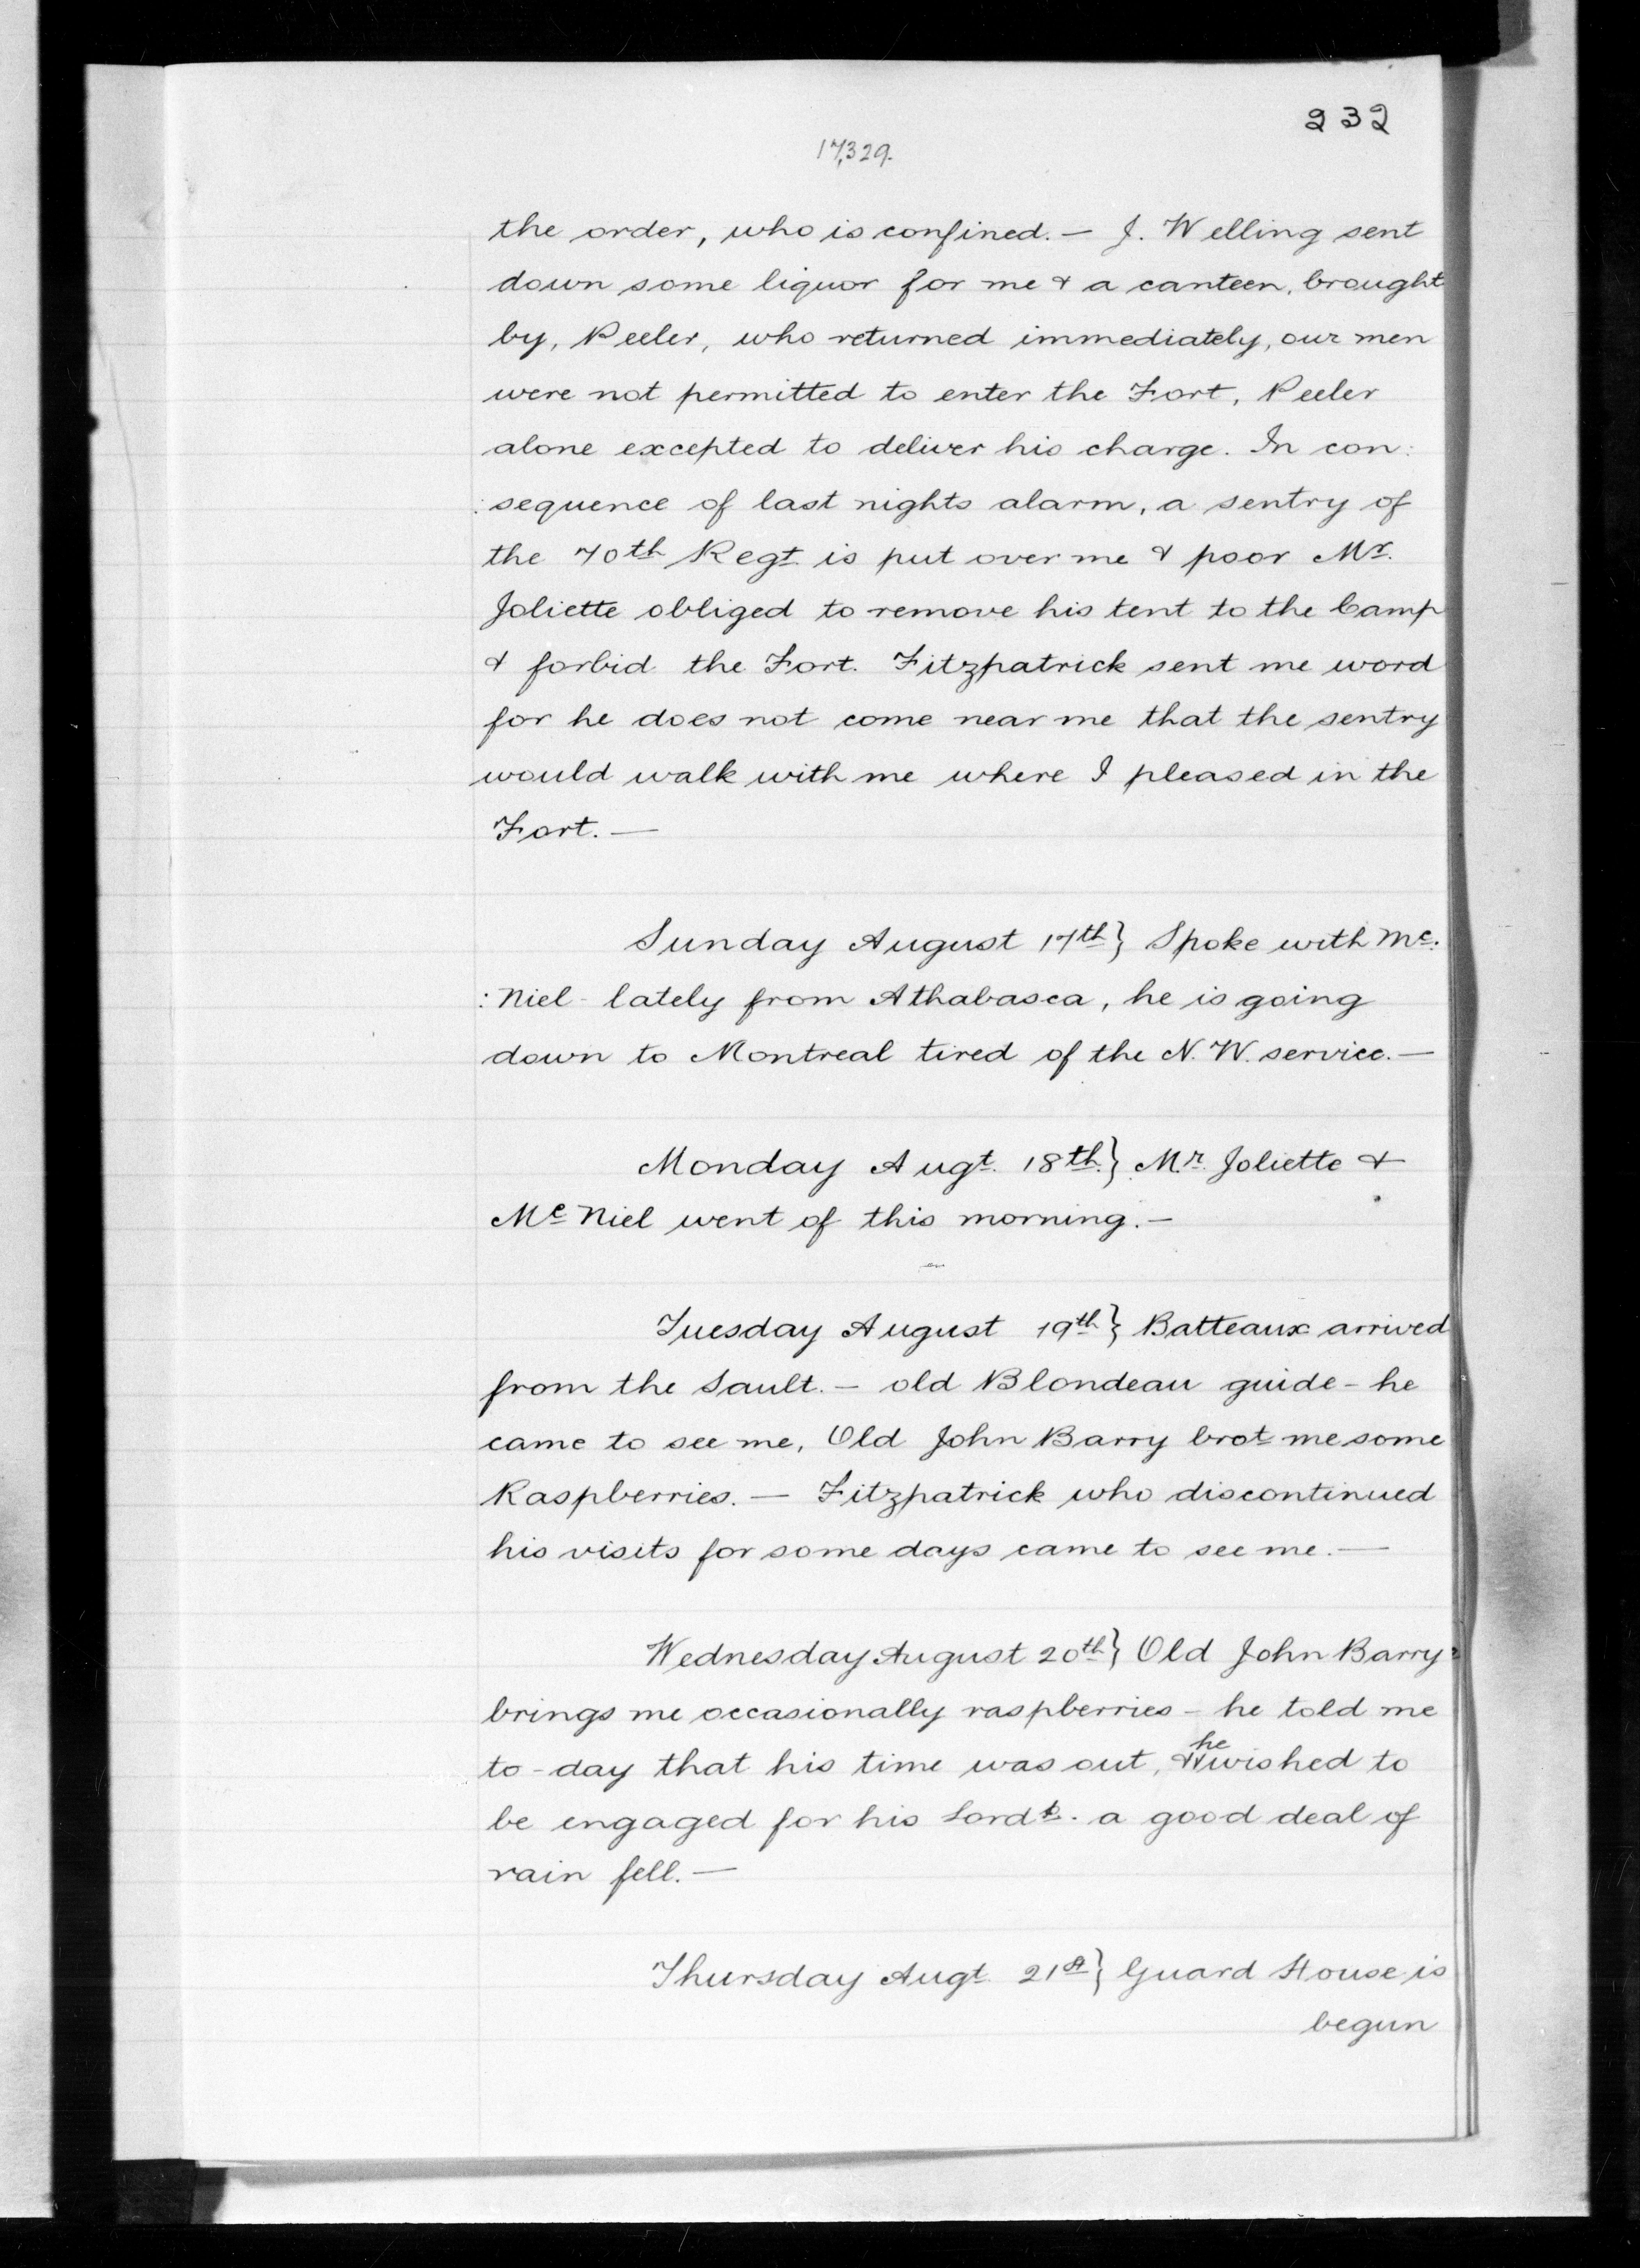 232
17,329.
the order, who is confined. — J. Welling sent
down some liquor for me & a canteen, brought
by, Peeler, who returned immediately, our men
were not permitted to enter the Fort, Peeler
alone excepted to deliver his charge. In con:
:sequence of last nights alarm, a sentry of
the 70th Regt. is put over me & poor Mr.
Joliette obliged to remove his tent to the Camp
& forbid the Fort. Fitzpatrick sent me word
for he does not come near me that the sentry
would walk with me where I pleased in the
Fort. —
Sunday August 17th } Spoke with Mc:
:Niel - lately from Athabasca, he is going
down to Montreal tired of the N. W. service. —
Monday Augt. 18th. } Mr. Joliette &
Mc Niel went of this morning. —
Tuesday August 19th } Batteaux arrived
from the Sault. — old Blondeau guide - he
came to see me, Old John Barry brot me some
Raspberries. — Fitzpatrick who discontinued
his visits for some days came to see me. —
Wednesday August 20th } Old John Barry
brings me occasionally raspberries - he told me
to-day that his time was out, & he wished to
be engaged for his Lordp. a good deal of
rain fell. —
Thursday Augt. 21st } Guard House is
begun